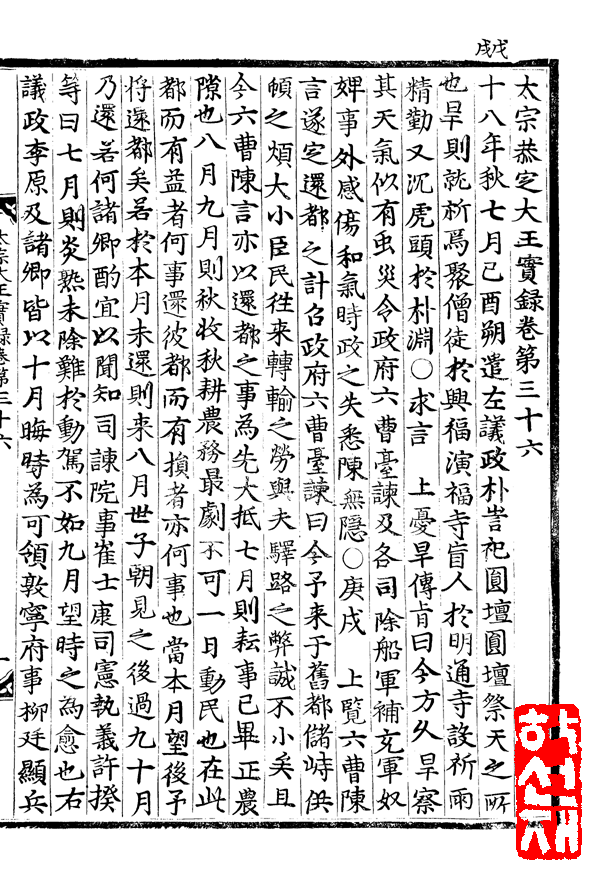 戌戊
太宗恭定大王實錄卷第三十六
十八年秋七月己酉朔遣左議政朴訔祀圓壇圓壇祭天之所
也旱則就祈焉聚僧徒於興福演福寺盲人於明通寺設祈雨
精勤又沉虎頭於朴淵○求言　上憂旱傳旨曰今方久旱察
其天氣似有虫災令政府六曹臺諫及各司除船軍補充軍奴
婢事外感傷和氣時政之失悉陳無隱○庚戌　上覽六曹陳
言遂定還都之計召政府六曹臺諫曰今予来于舊都儲峙供
頓之煩大小臣民往來轉輸之勞與夫驛路之弊誠不小矣且
今六曹陳言亦以還都之事為先大抵七月則耘事已畢正農
隙也八月九月則秋收秋耕農務最劇不可一日動民也在此
都而有益者何事還彼都而有損者亦何事也當本月望後予
将還都矣若於本月未還則来八月世子朝見之後過九十月
乃還若何諸卿酌宜以聞知司諫院事崔士康司憲執義許揆
等曰七月則炎熱未除難於動駕不如九月望時之為愈也右
議政李原及諸卿皆以十月晦時為可領敦寧府事柳廷顯兵
太宗大王實錄卷第三十六　一
학선재